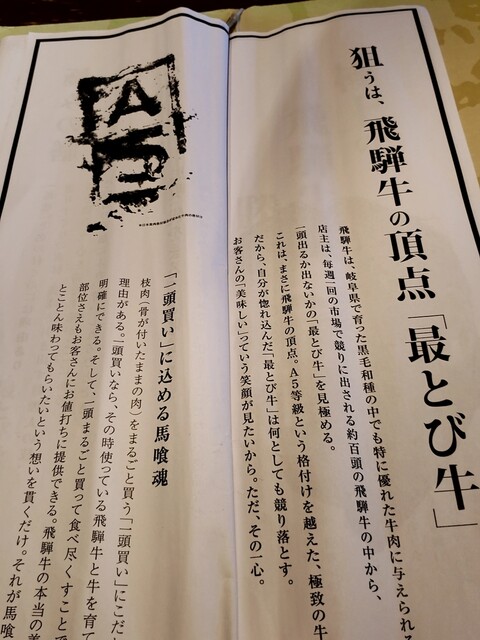 狙うは、飛騨牛の頂点「最とび牛」
飛騨牛は、岐阜県で育った黒毛和種の中でも特に優れた牛肉に与えられる
店主は、毎週一回の市場で競りに出される約百頭の飛騨牛の中から、
一頭出るか出ないかの「最とび牛」を見極める。
これは、まさに飛騨牛の頂点。A5等級という格付けを越えた、極致の牛
だから、自分が惚れ込んだ「最とび牛」は何としても競り落とす。
お客さんの「美味しい」っていう笑顔が見たいから。ただ、その一心。
A5
「一頭買い」に込める馬喰魂
枝肉(骨が付いたままの肉)をまるごと買う「一頭買い」にこだ
理由がある。一頭買いなら、その時使っている飛騨牛と牛を育て
明確にできる。そして、一頭まるごと買って食べ尽くすことで
部位さえもお客さんにお値打ちに提供できる。飛騨牛の本当の美
とことん味わってもらいたいという想いを貫くだけ。それが馬喰